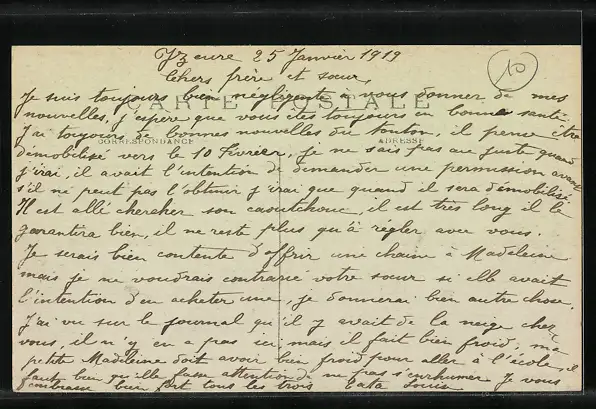 Yzeure 25 Janvier 1919
10
Chers frère et sœur,
Je suis toujours bien négligente à vous donner de mes
CARTE POSTALE
nouvelles, j'espère que vous êtes toujours en bonne santé.
J'ai toujours de bonnes nouvelles du tonton, il pense être
CORRESPONDANCE ADRESSE
démobilisé vers le 10 Fevrier, je ne sais pas au juste quand
j'irai, il avait l'intention de demander une permission avant
s'il ne peut pas l'obtenir j'irai que quand il sera démobilisé.
Il est allé chercher son caoutchouc, il est très long il le
garantira bien, il ne reste plus qu'à régler avec vous.
Je serais bien contente d'offrir une chaine à Madeleine
mais je ne voudrais contrarie votre sœur si elle avait
l'intention d'en acheter une, je donnerai bien autre chose.
J'ai vu sur le journal qu'il y avait de la neige chez
vous, il n'y en a pas ici, mais il fait bien froid, ma
petite Madeleine doit avoir bien froid pour aller à l'école, il
faut bien qu'elle fasse attention de ne pas s'enrhumer Je vous
embrasse bien fort tous les trois Louise